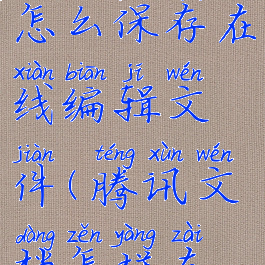 怎么保存在
xiàn biān jí wén
线编辑文
jiàn téng xùn wén
件(腾讯文
dàng zěn yàng zài
档怎样在